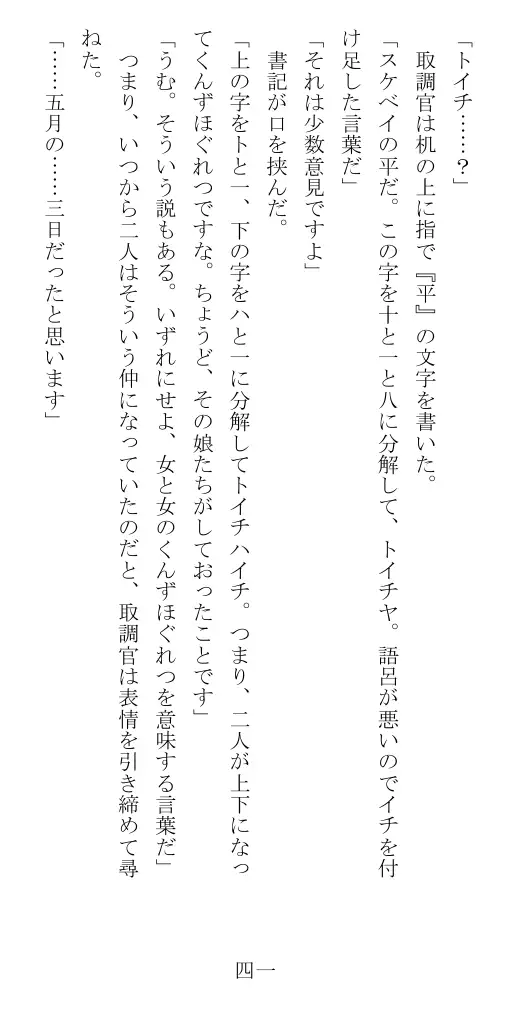 「トイチ……？」
　取調官は机の上に指で『平』の文字を書いた。
「スケベイの平だ。この字を十と一と八に分解して、トイチヤ。語呂が悪いのでイチを付
け足した言葉だ」
「それは少数意見ですよ」
　書記が口を挟んだ。
「上の字をトと一、下の字をハと一に分解してトイチハイチ。つまり、二人が上下になっ
てくんずほぐれつですな。ちょうど、その娘たちがしておったことです」
「うむ。そういう説もある。いずれにせよ、女と女のくんずほぐれつを意味する言葉だ」
　つまり、いつから二人はそういう仲になっていたのだと、取調官は表情を引き締めて尋
ねた。
「……五月の……三日だったと思います」
四一